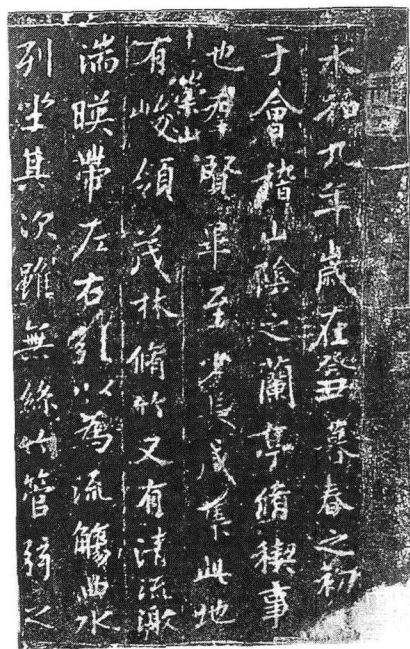 永和九年歲在癸丑暮春之初
于會稽山陰之蘭亭脩稧事
也羣賢畢至少長咸集此地
有崇山峻領茂林脩竹又有清流激
湍暎帶左右引以為流觴曲水
列坐其次雖無絲竹管弦之